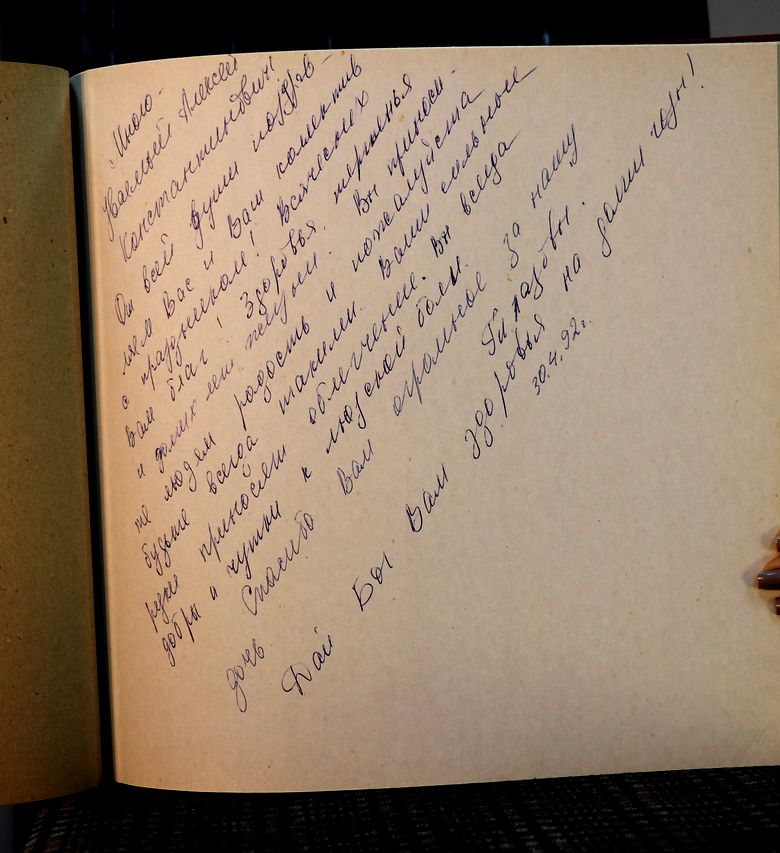 Много-
уваемый Алексей
Константинович
От всей души поздрав-
ляем Вас и Ваш коллектив
с праздником! Всяческих
Вам благ! Здоровья, терпенья
и долгих лет жизни. Вы приноси-
те людям радость и пожалуйста
будьте всегда такими. Ваши сильные
руки приносят облегчение. Вы всегда
добры и чутки к людской боли.
Спасибо Вам огромное за нашу
дочь.
Дай Бог Вам здоровья на долгие годы!
30.4.92г.